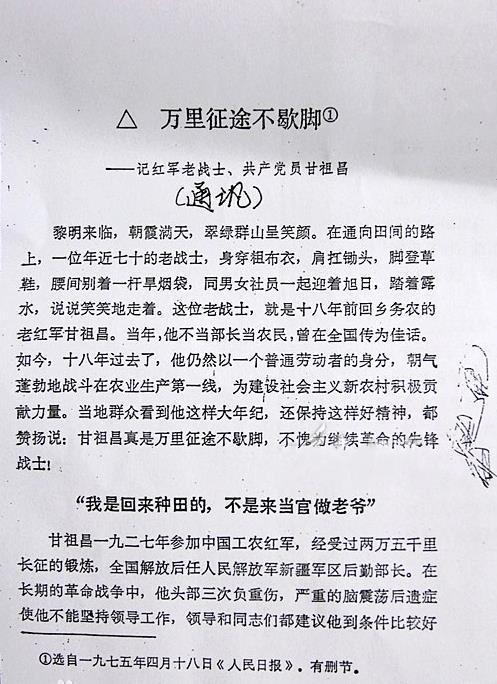 △ 万里征途不歇脚①
——记红军老战士、共产党员甘祖昌
(通讯)
黎明来临，朝霞满天，翠绿群山呈笑颜。在通向田间的路
上，一位年近七十的老战士，身穿粗布衣，肩扛锄头，脚登草
鞋，腰间别着一杆旱烟袋，同男女社员一起迎着旭日，踏着露
水，说说笑笑地走着。这位老战士，就是十八年前回乡务农的
老红军甘祖昌。当年，他不当部长当农民，曾在全国传为佳话。
如今，十八年过去了，他仍然以一个普通劳动者的身分，朝气
蓬勃地战斗在农业生产第一线，为建设社会主义新农村积极贡
献力量。当地群众看到他这样大年纪，还保持这样好精神，都
赞扬说：甘祖昌真是万里征途不歇脚，不愧为继续革命的先锋
战士！
“我是回来种田的，不是来当官做老爷”
甘祖昌一九二七年参加中国工农红军，经受过两万五千里
长征的锻炼，全国解放后任人民解放军新疆军区后勤部长。在
长期的革命战争中，他头部三次负重伤，严重的脑震荡后遗症
使他不能坚持领导工作，领导和同志们都建议他到条件比较好
①选自一九七五年四月十八日《人民日报》。有删节。